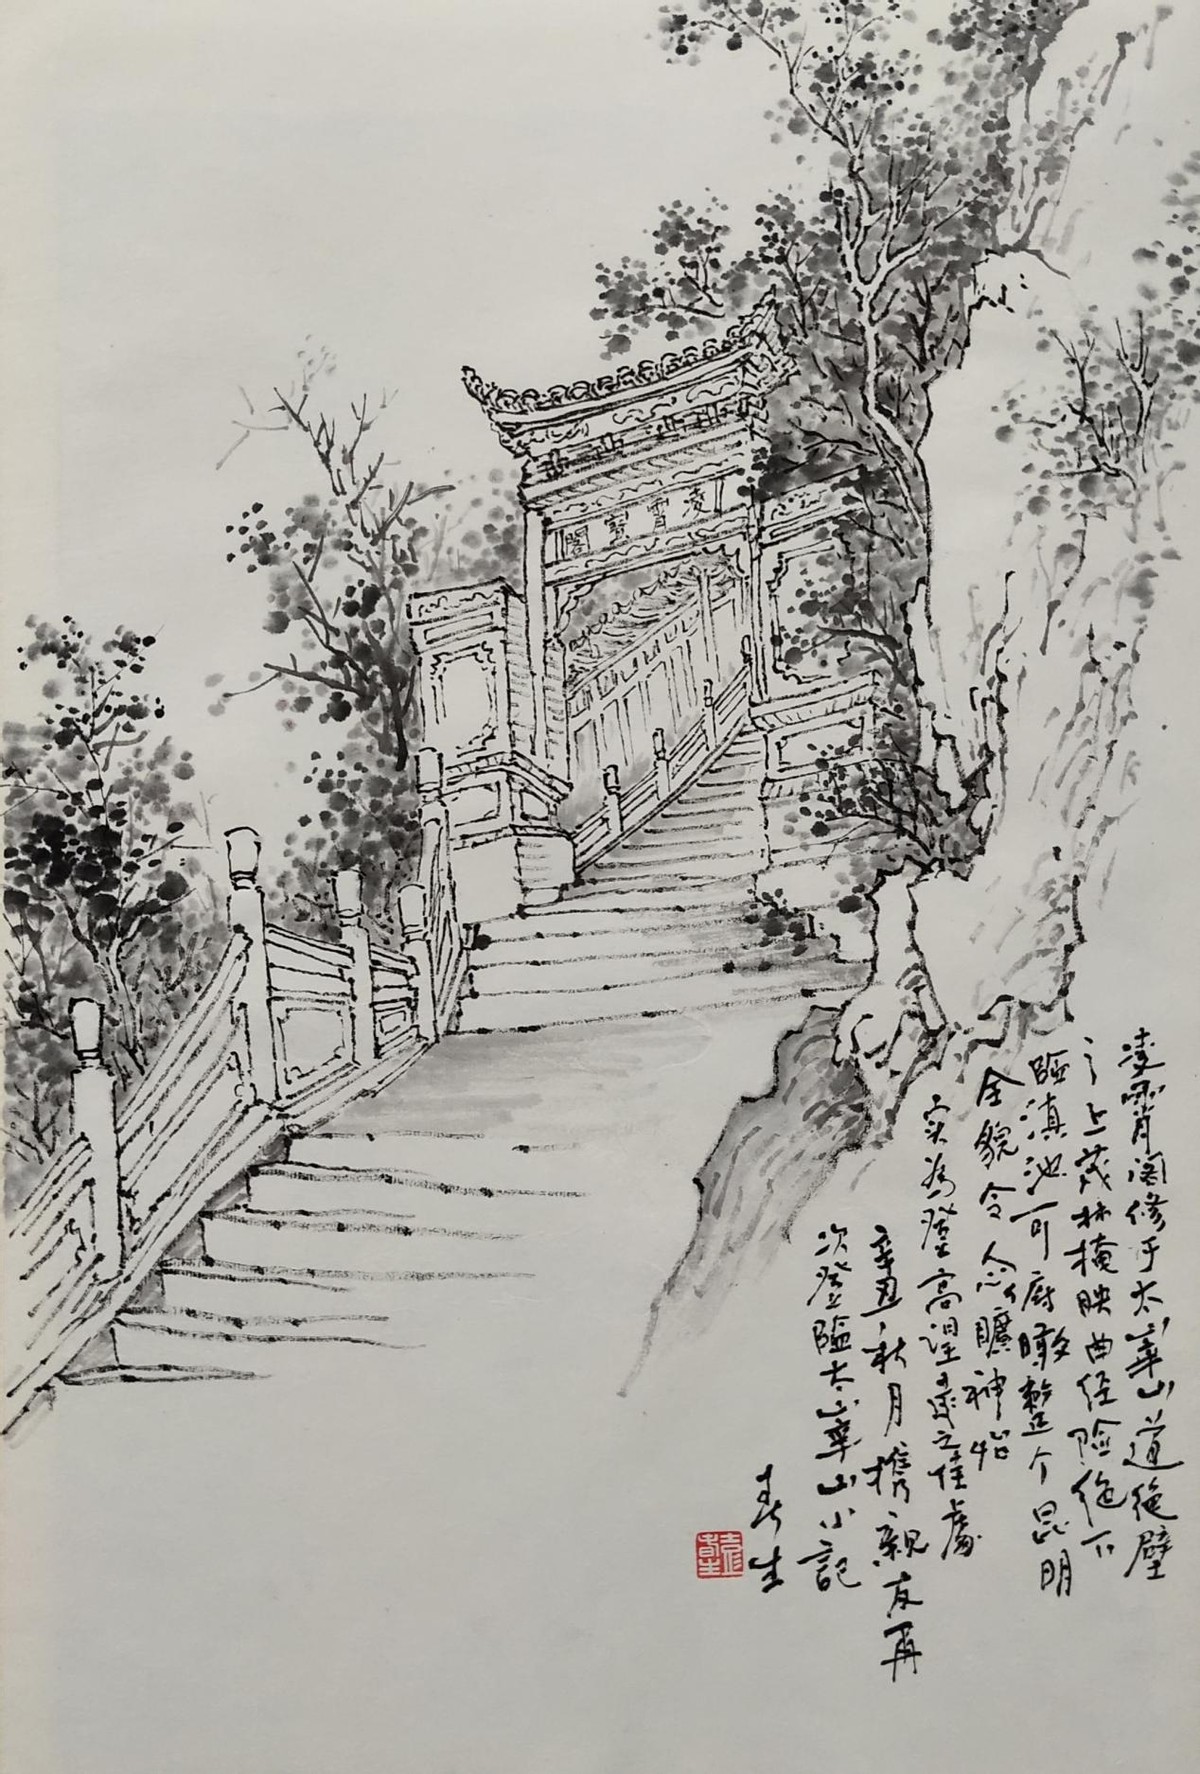 凌霄寶閣
凌霄阁修于太華山道绝壁
之上茂林掩映曲径险绝下
臨滇池可府瞰整个昆明
全貌令人心曠神怡
实为登高之佳處
辛丑秋月携親友再
次登臨太華山小記
春生